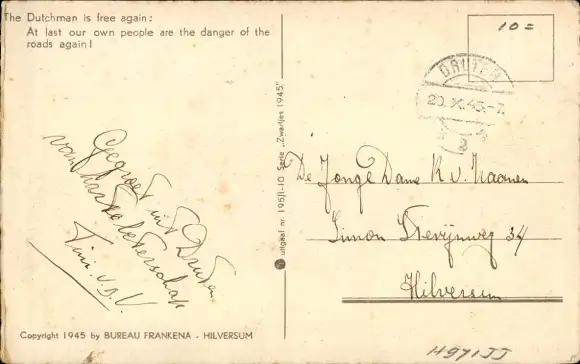 The Dutchman is free again:
At last our own people are the danger of the
roads again!
10=
DRUTEN
20.X.45.-7.
Gegroet uit Druten
van harte beterschap
Tini. v.d. V.
De Jonge Dame R v. Haanen
Simon Stevijnweg 34
Hilversum
uitgaaf nr. 195/1-10 Serie „Zwartjes 1945"
Copyright 1945 by BUREAU FRANKENA - HILVERSUM
H971JJ